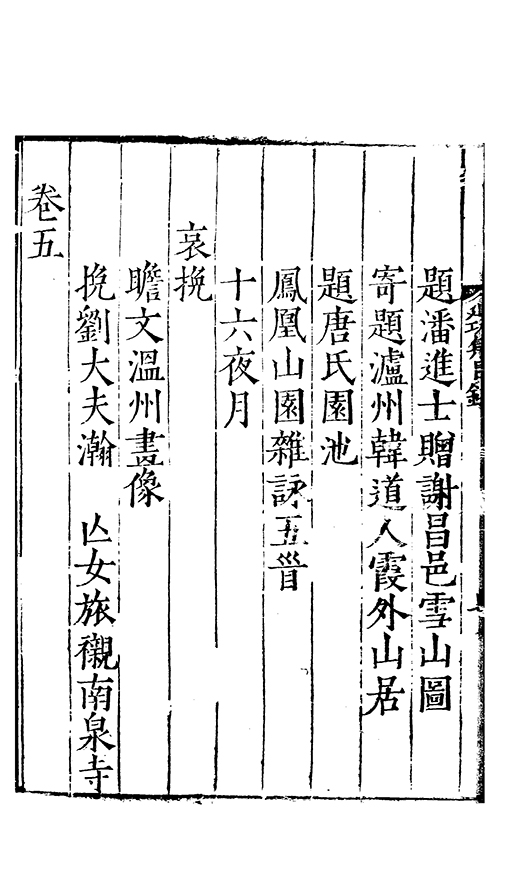 題潘進士贈謝昌邑雪山圖
寄題瀘州韓道人霞外山居
題唐氏園池
鳳凰山園雜詠五首
十六夜月
哀挽
瞻文溫州畫像
挽劉大夫瀚　亾女旅櫬南泉寺
卷五